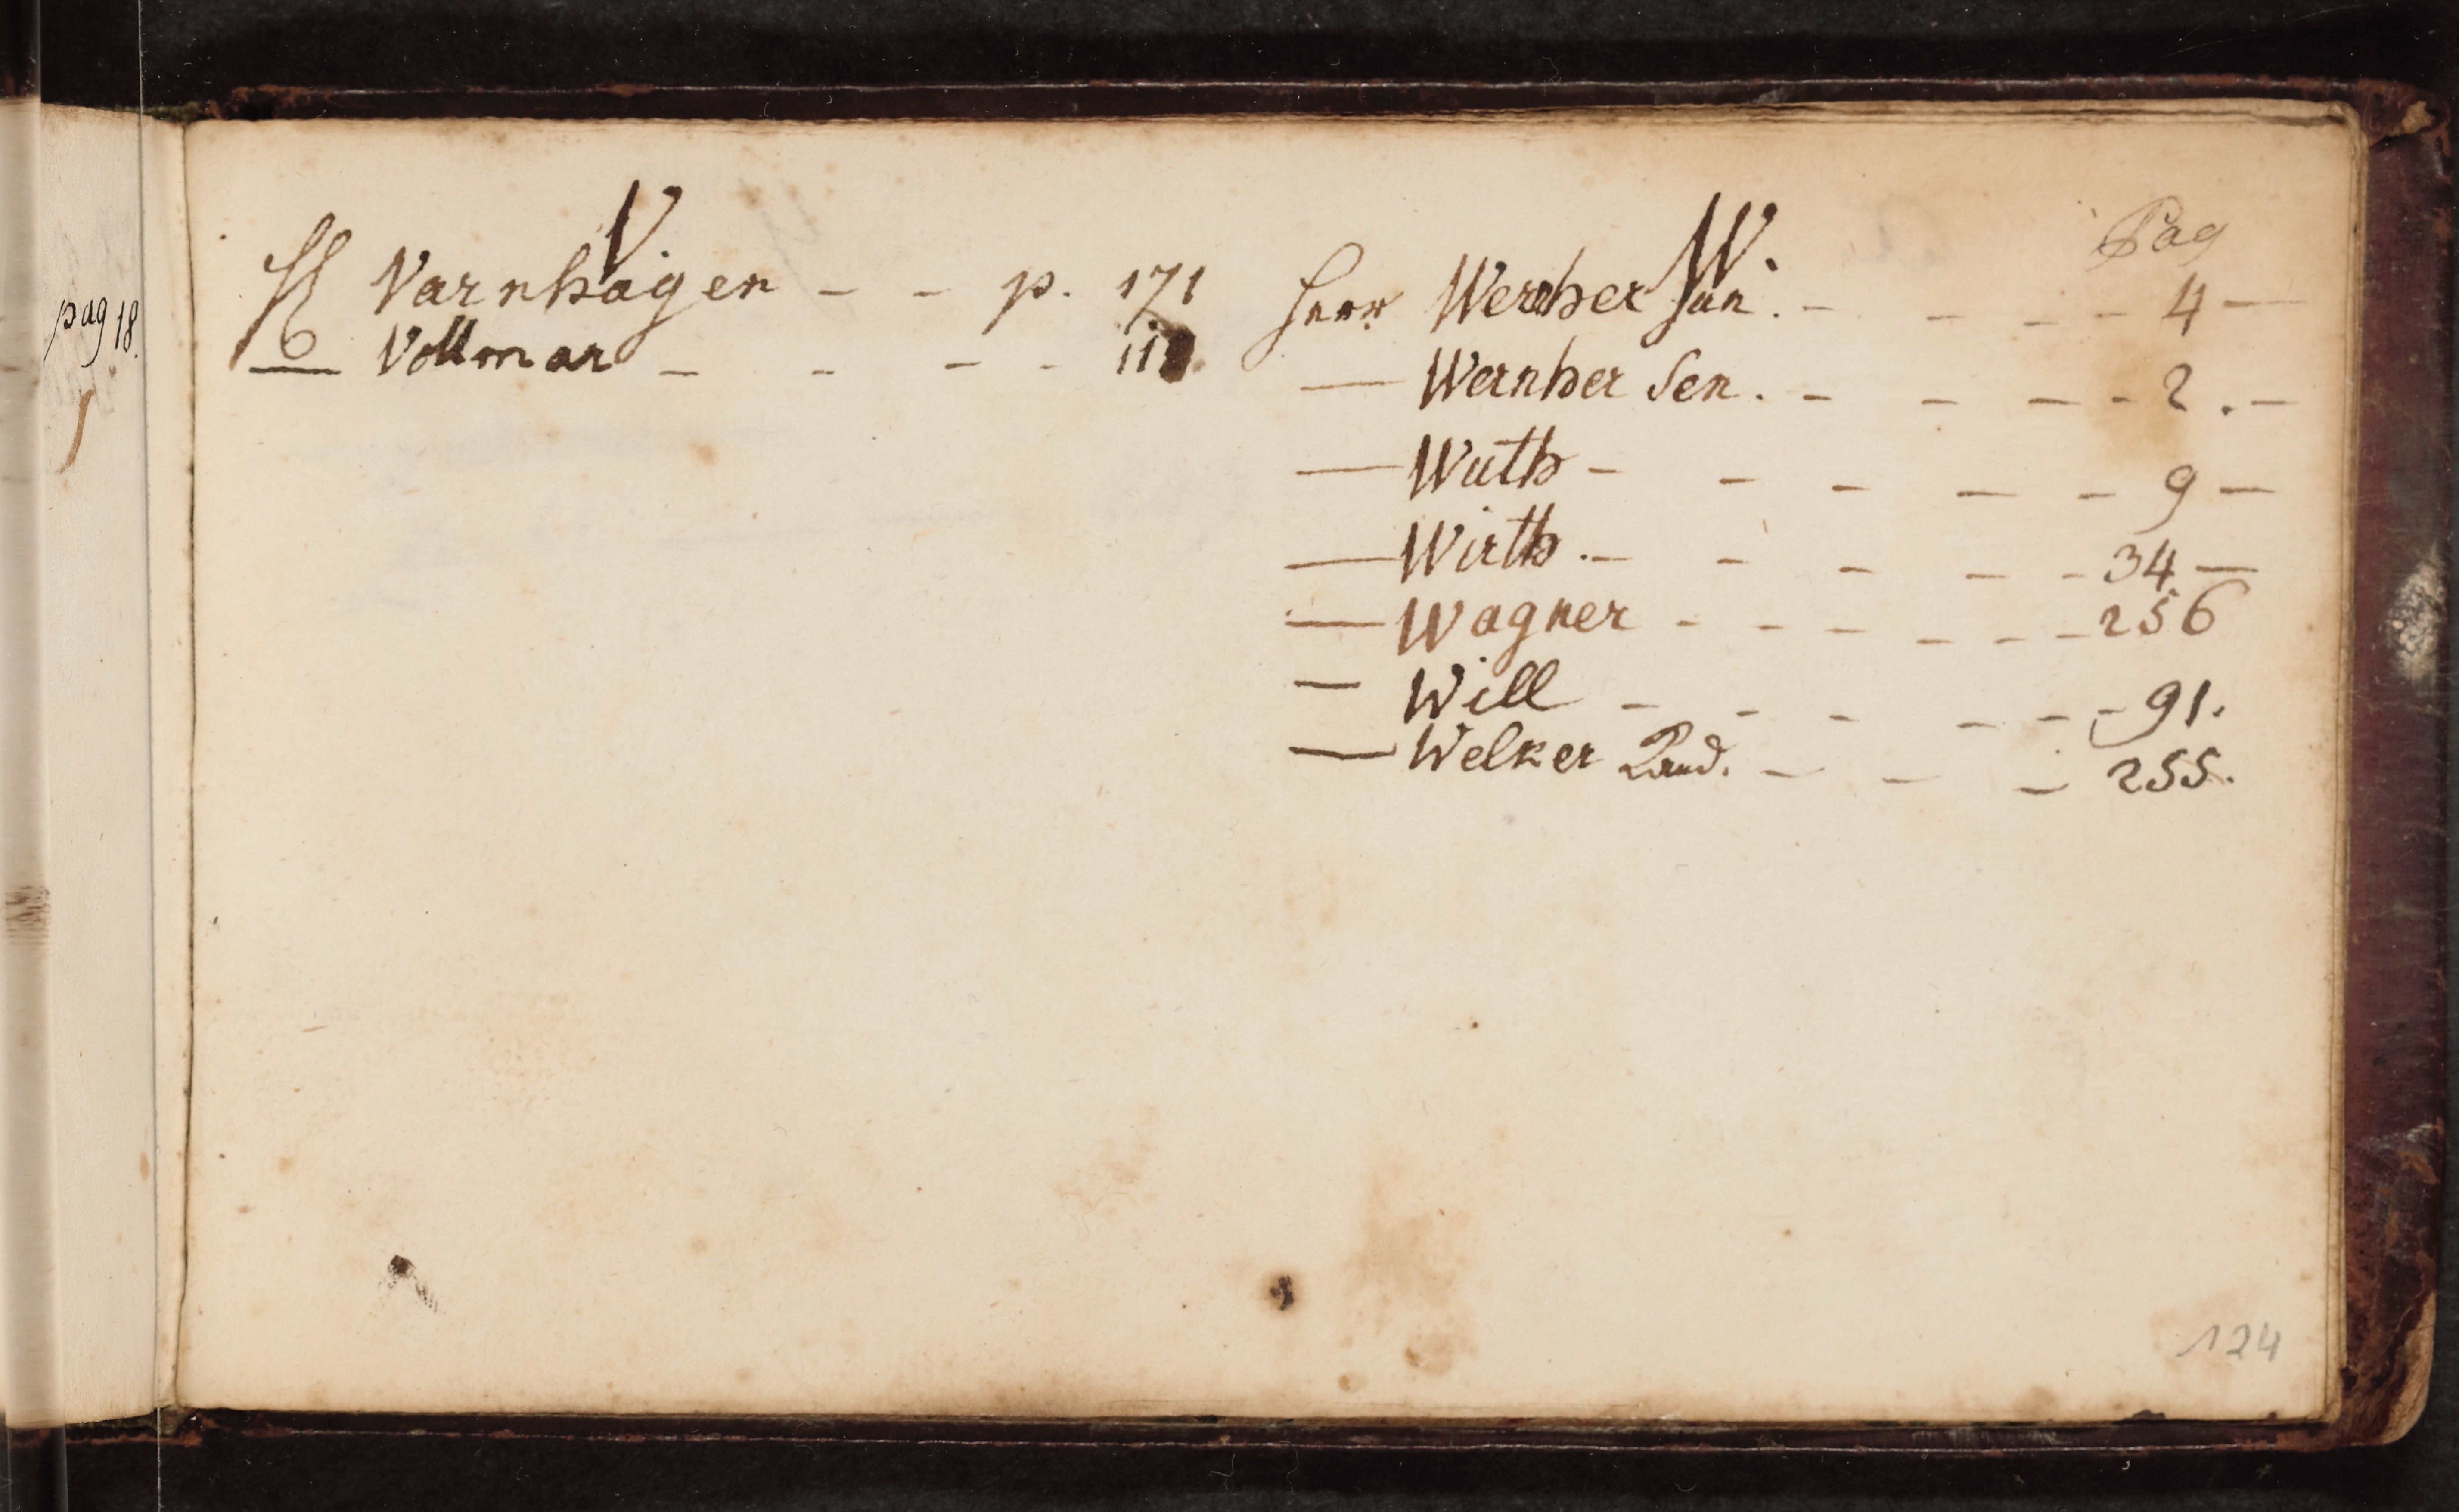 pag 18.
V
H Varnhagen - - p. 171
— Vollmar - - - - 11
W.
Pag
Herr Wernher Jun. - - - - 4 —
— Wernher Sen. - - - - 2. -
— Wuth - - - - - 9 —
— Wirth. - - - - - 34 —
— Wagner - - - - - - 256
— Will - - - - - - 91.
— Welker - - - 255.
124